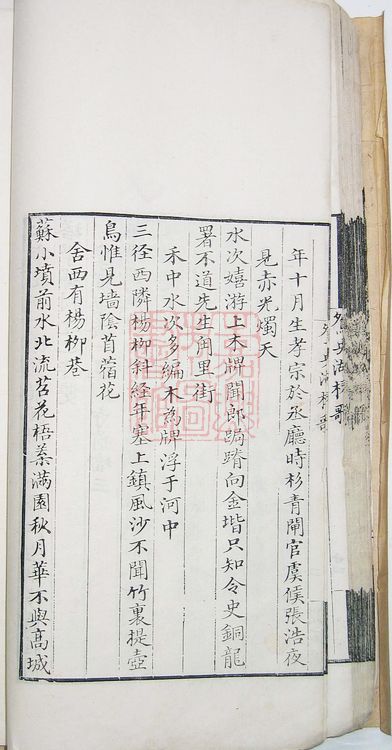 年十月生孝宗於丞廳時杉青閘官虞候張浩夜
見赤光燭天
水次嬉游上木牌聞郎向金堦只知令史銅龍
署不道先生甪里街
禾中水次多編木為牌浮于河中
三径西隣楊柳斜経年塞上鎮風沙不聞竹裏提壺
鳥惟見墙陰苜蓿花
舍西有楊柳巷
蘇小墳前水北流苕花梧葉滿園秋月華不與髙城